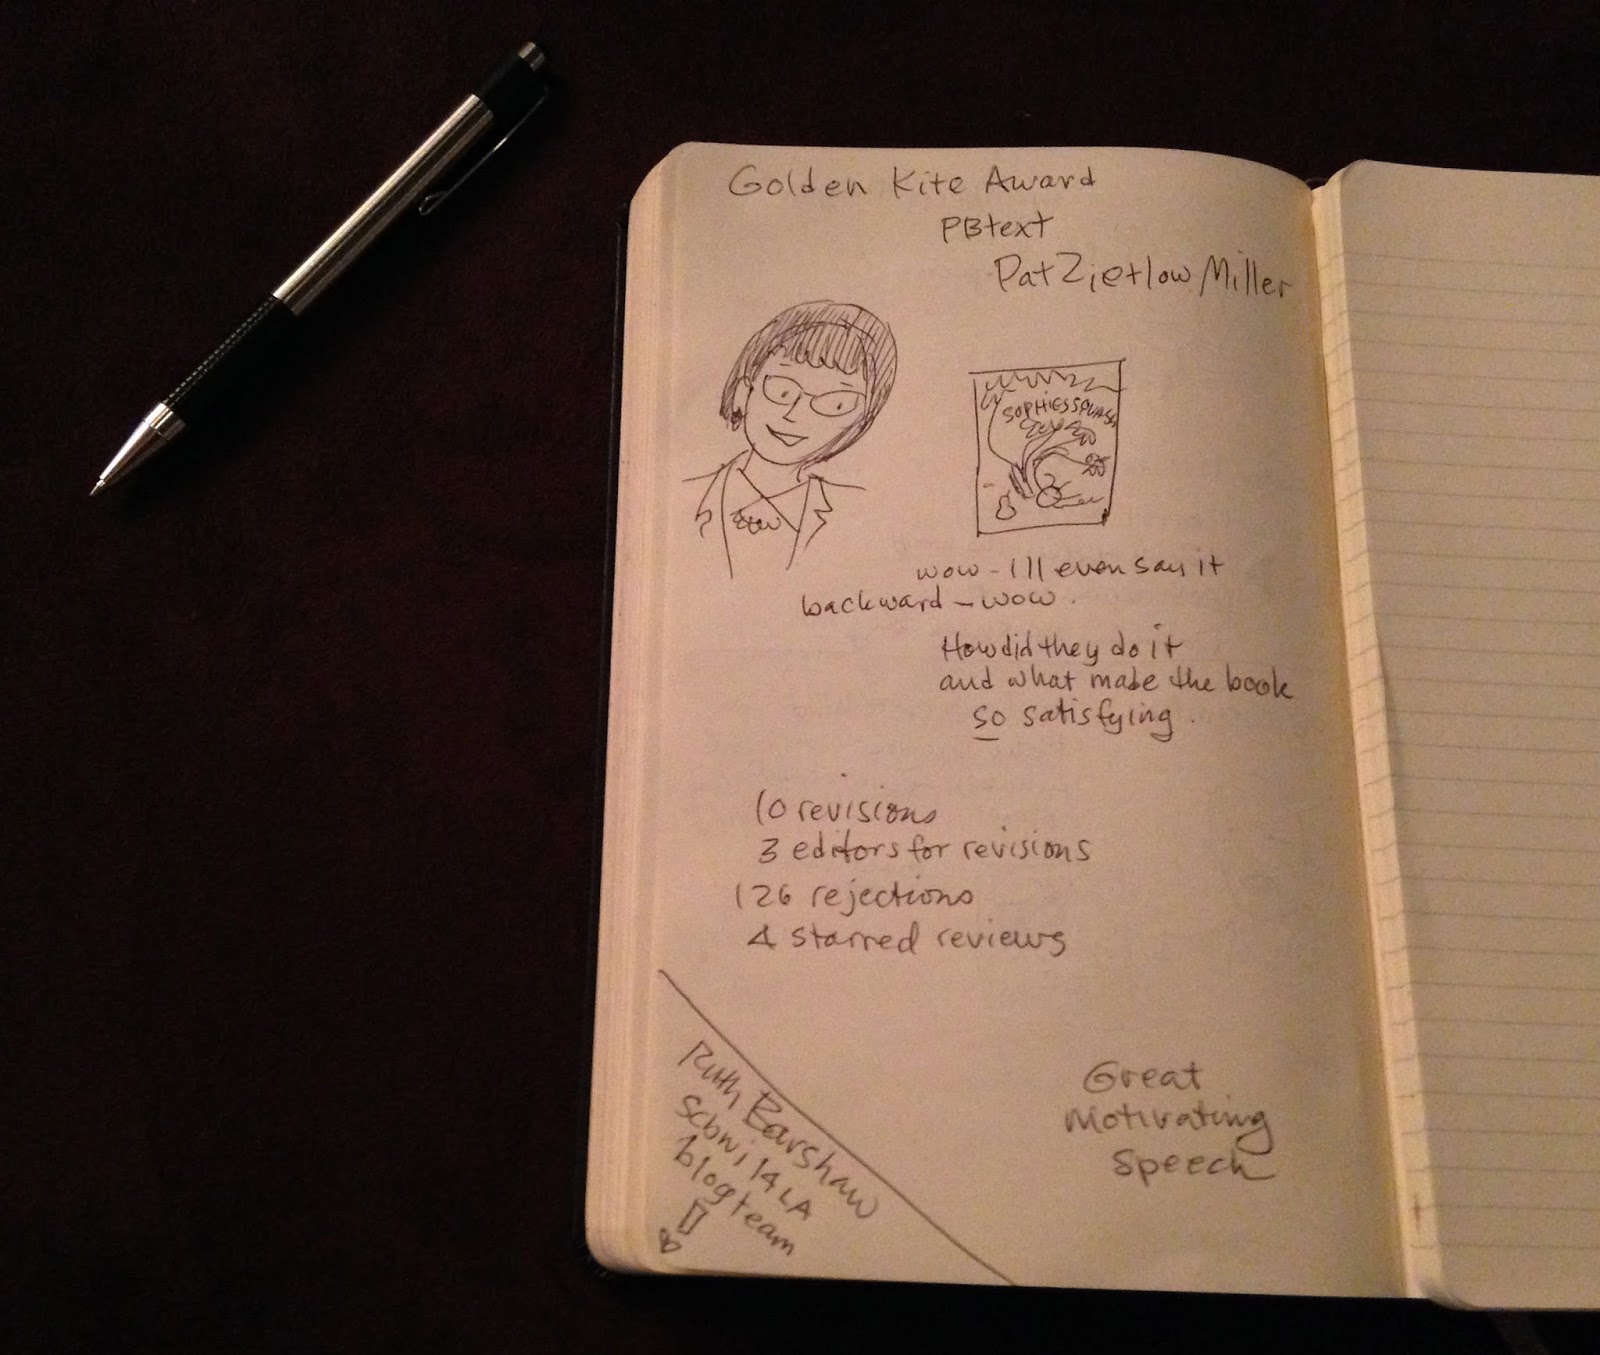 Golden Kite Award
PB text
Pat Zietlow Miller
SOPHIES SQUASH
wow - I'll even say it
backward - wow.
How did they do it
and what made the book
so satisfying.
10 revisions
3 editors for revisions
126 rejections
4 starred reviews
Ruth Barshaw
scbwi 14 LA
blog team
!
Great
Motivating
Speech